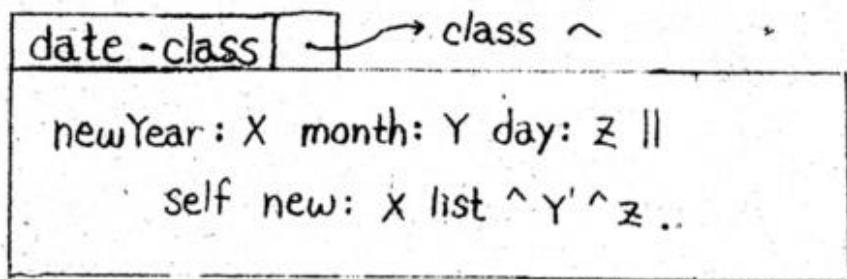 date-class → class ^
newYear: X month: Y day: Z ||
self new: X list ^ Y' ^ Z ..